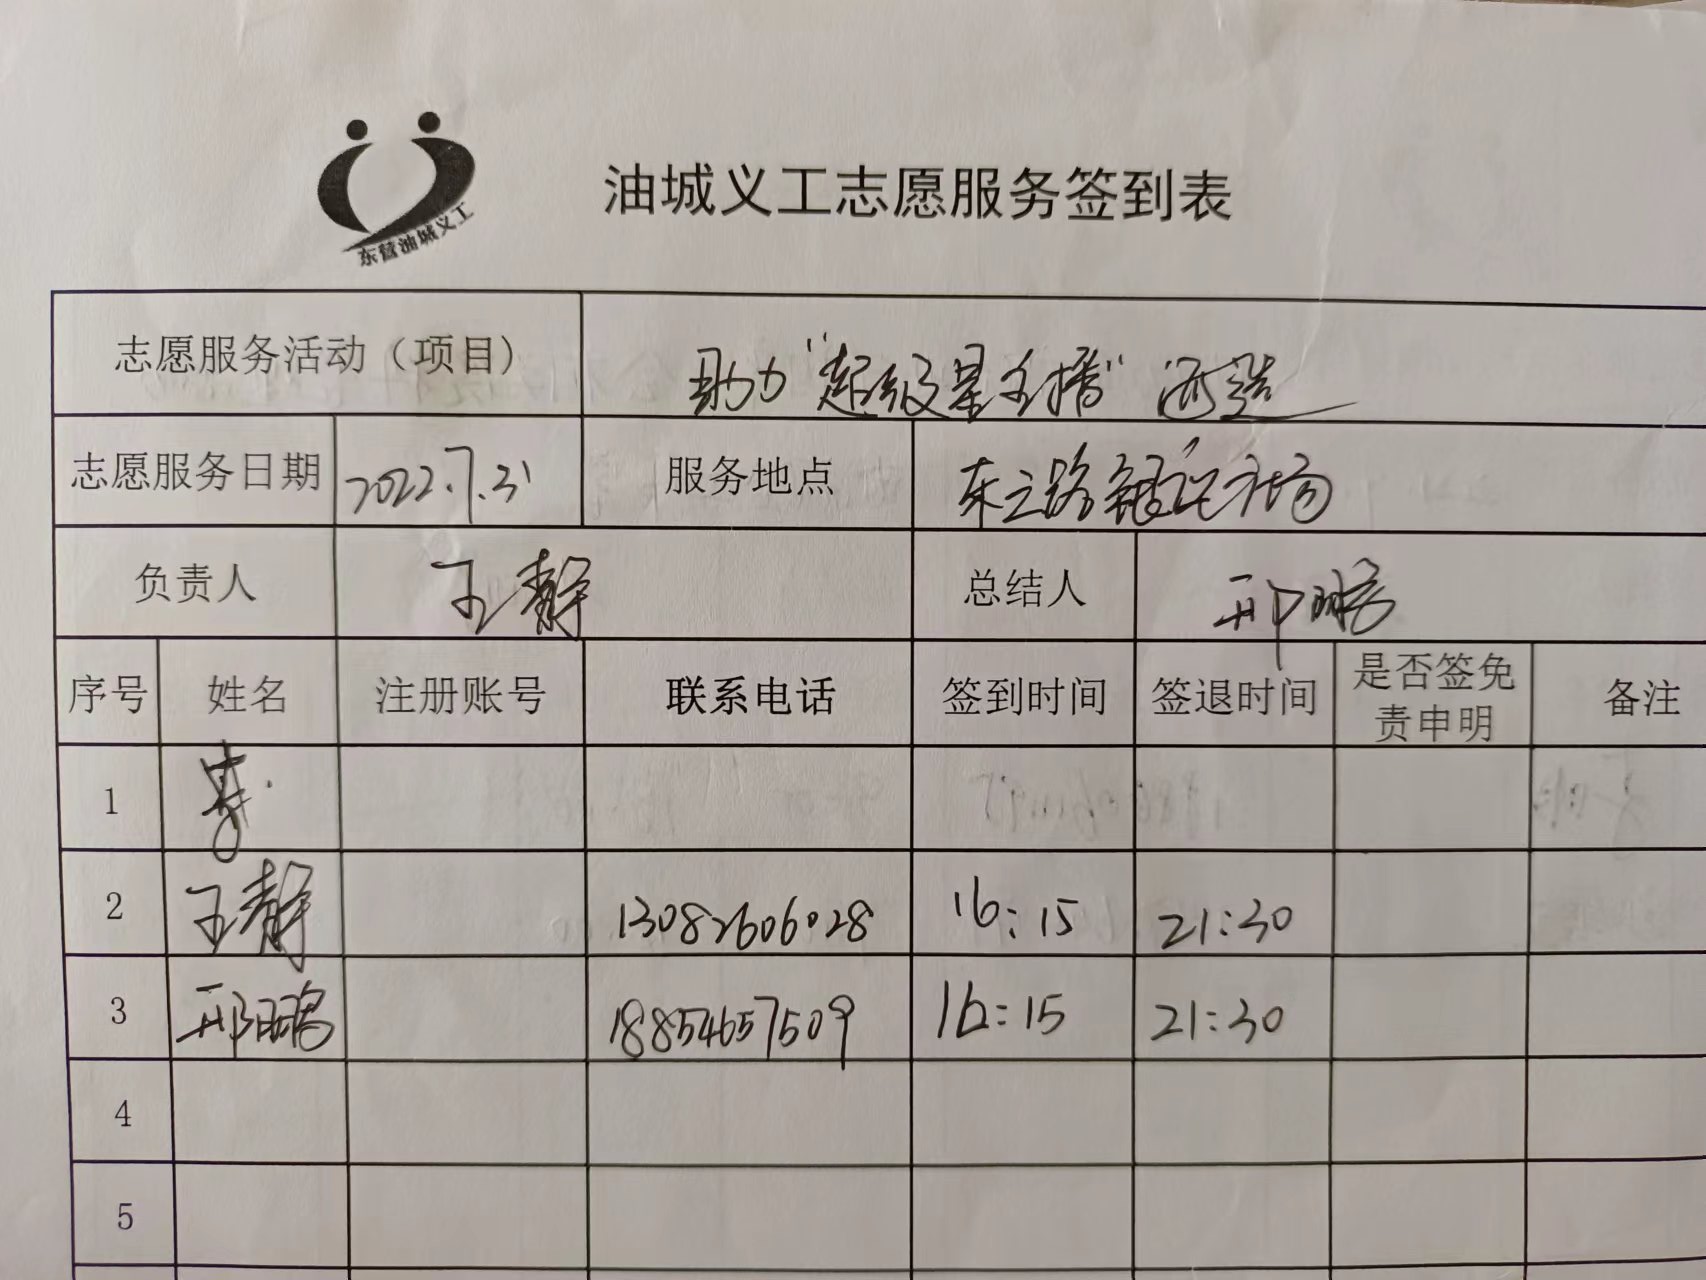 东营油城义工
油城义工志愿服务签到表
志愿服务活动（项目） 助力“超级星主播”海选
志愿服务日期 2022.7.31 服务地点 东三路 市场
负责人 王静 总结人 邢鹏
序号 姓名 注册账号 联系电话 签到时间 签退时间 是否签免责申明 备注
1
2 王静 13082606028 16:15 21:30
3 邢鹏 18854657509 16:15 21:30
4
5